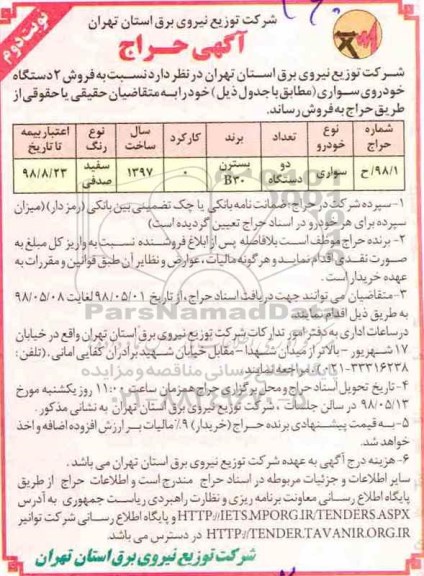 شرکت توزیع نیروی برق استان تهران
نوبت دوم
آگهی حراج
شرکت توزیع نیروی برق استان تهران در نظر دارد نسبت به فروش ۲ دستگاه
خودروی سواری (مطابق با جدول ذیل) خود را به متقاضیان حقیقی یا حقوقی از
طریق حراج به فروش رساند.
شماره حراج | نوع خودرو | تعداد | برند | کارکرد | سال ساخت | نوع رنگ | اعتبار بیمه تا تاریخ
۹۸/۱/ح | سواری | دو دستگاه | بسترن B30 | ۰ | ۱۳۹۷ | سفید صدفی | ۹۸/۸/۲۳
۱- سپرده شرکت در حراج: ضمانت نامه بانکی یا چک تضمینی بین بانکی (رمز دار) (میزان
سپرده برای هر خودرو در اسناد حراج تعیین گردیده است)
۲- برنده حراج موظف است بلافاصله پس از ابلاغ فروشنده نسبت به واریز کل مبلغ به
صورت نقدی اقدام نماید و هر گونه مالیات، عوارض و نظایر آن طبق قوانین و مقررات به
عهده خریدار است.
۳- متقاضیان می توانند جهت دریافت اسناد حراج، از تاریخ ۹۸/۰۵/۰۱ لغایت ۹۸/۰۵/۰۸
به طریق ذیل اقدام نمایند.
در ساعات اداری به دفتر امور تدارکات شرکت توزیع نیروی برق استان تهران واقع در خیابان
۱۷ شهریور - بالاتر از میدان شهدا - مقابل خیابان شهید برادران کفایی امانی، (تلفن:
۳۳۳۱۶۲۳۸-۰۲۱) مراجعه نمایند.
۴- تاریخ تحویل اسناد حراج و محل برگزاری حراج همزمان ساعت ۱۱:۰۰ روز یکشنبه مورخ
۹۸/۰۵/۱۳ در سالن جلسات، شرکت توزیع نیروی برق استان تهران به نشانی مذکور.
۵- به قیمت پیشنهادی برنده حراج (خریدار) ۹٪ مالیات بر ارزش افزوده اضافه و اخذ
خواهد شد.
۶- هزینه درج آگهی به عهده شرکت توزیع نیروی برق استان تهران می باشد.
سایر اطلاعات و جزئیات مربوطه در اسناد حراج مندرج است و اطلاعات حراج از طریق
پایگاه اطلاع رسانی معاونت برنامه ریزی و نظارت راهبردی ریاست جمهوری به آدرس
HTTP://IETS.MPORG.IR/TENDERS.ASPX و پایگاه اطلاع رسانی شرکت توانیر
HTTP://TENDER.TAVANIR.ORG.IR در دسترس می باشد.
شرکت توزیع نیروی برق استان تهران
ParsNamadData